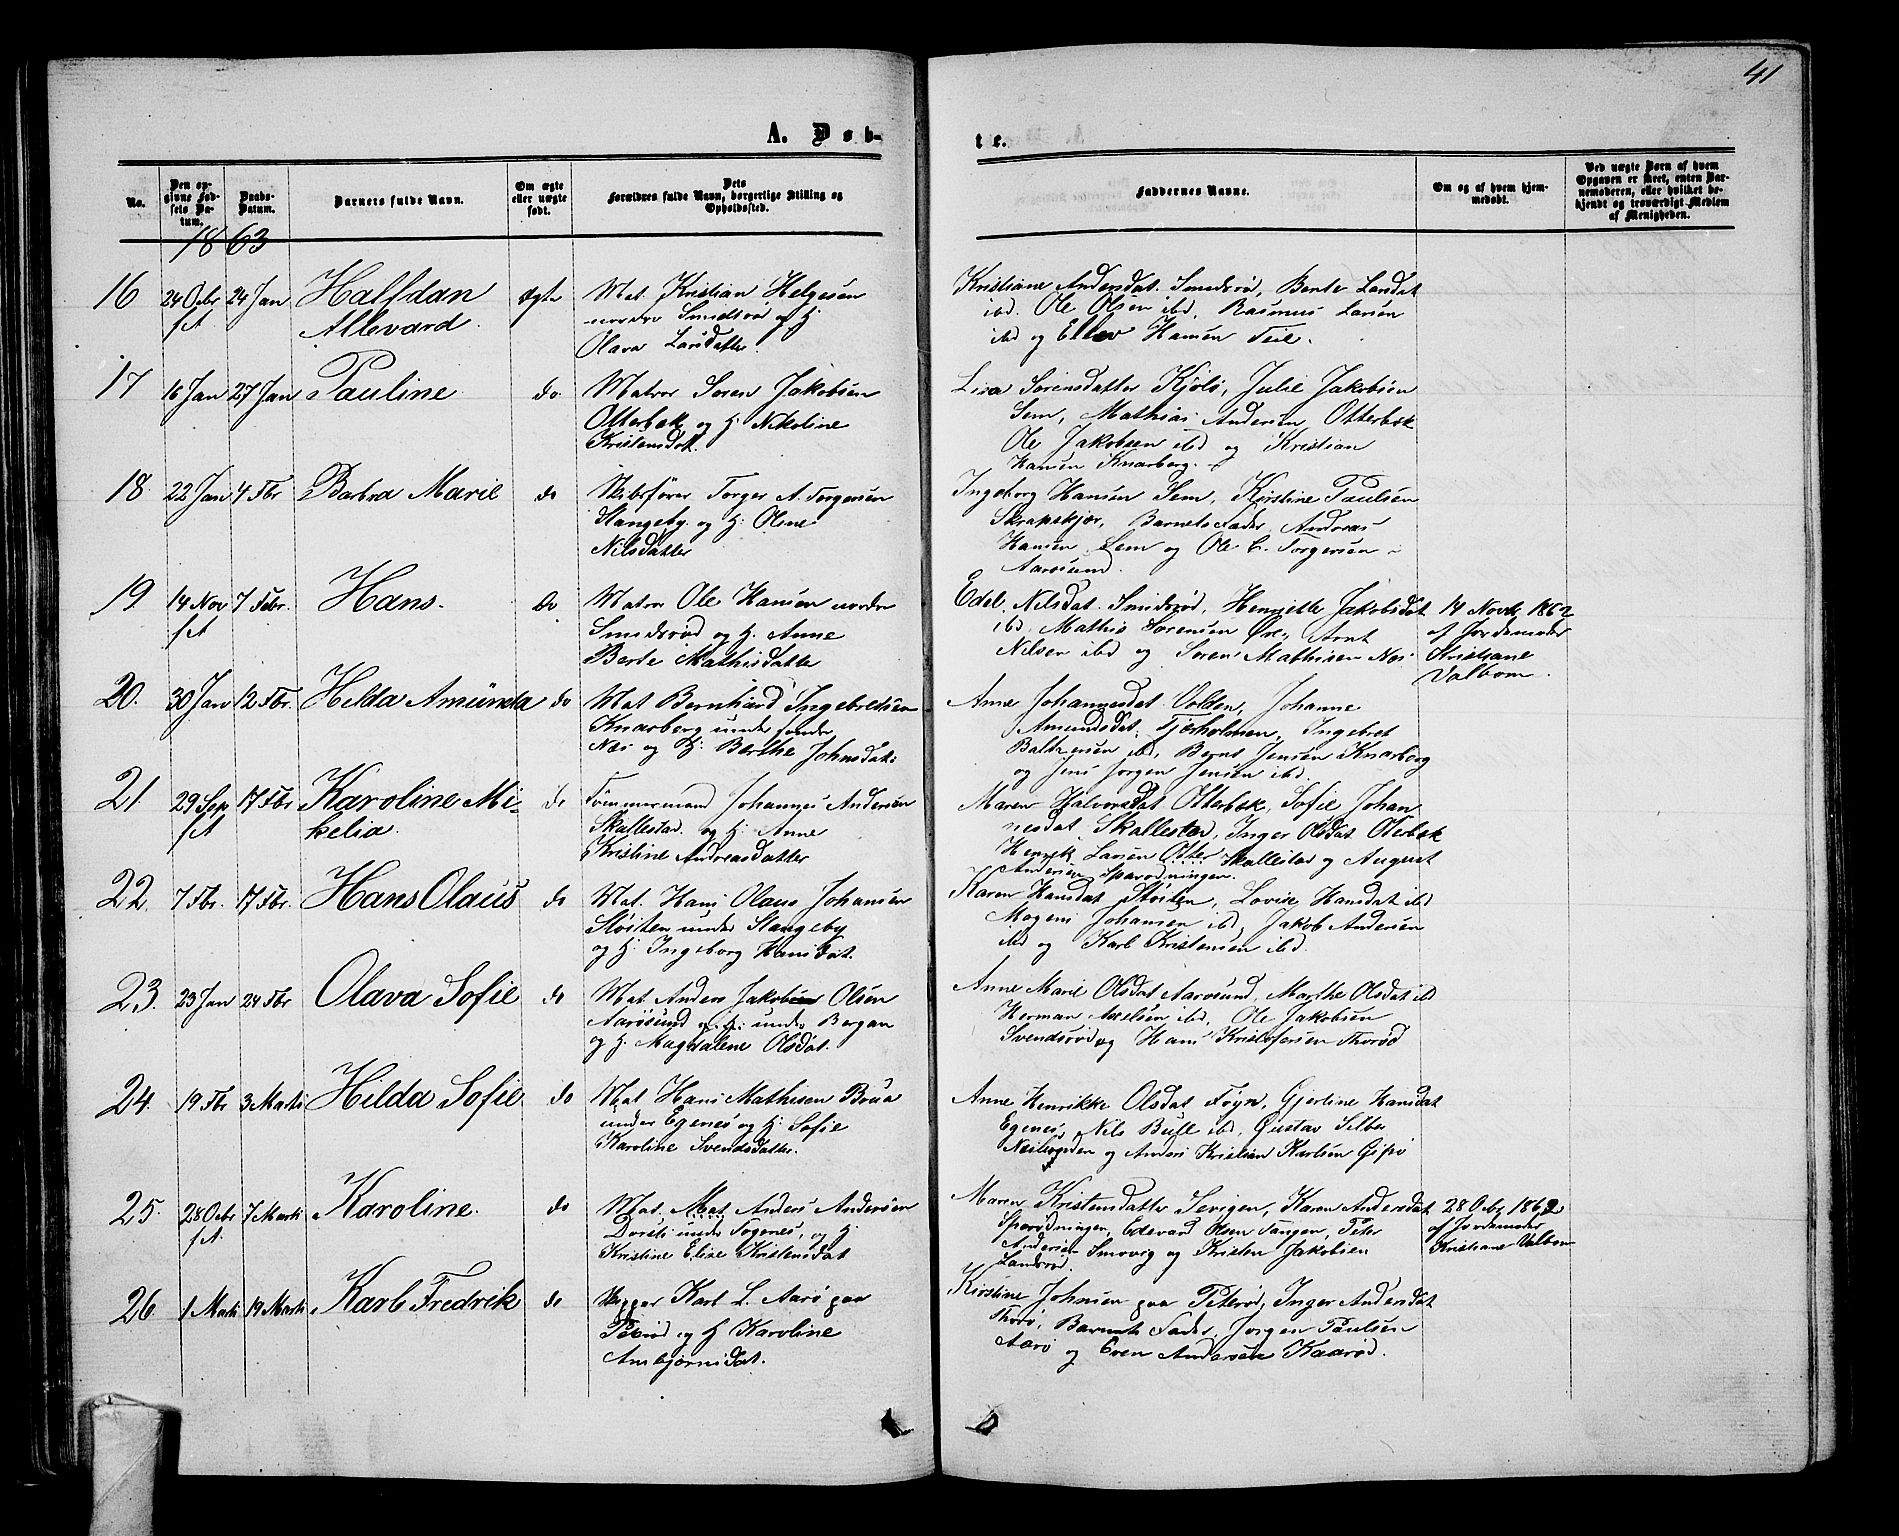 41
A. Døb-
te.
No.
Den op-
givne Fød-
sels Da-
tum.
Daabs-
Datum.
Barnets fulde Navn.
Om ægte
eller uægte
født.
Dets
Forældres fulde Navn, borgerlige Stilling og
Opholdssted.
Faddernes Navne.
Om og af hvem hjem-
medøbt.
Ved uægte Børn af hvem
Opgaven er skeet, enten Bar-
nemoderen, eller hvilket be-
kjendt og troværdigt Medlem
af Menigheden.
1863
16 24 Octr 24 Jan Halfdan ægte Mat. Kristian Helgesen
f A Allevard. nordre Smidsrød og H.
Olava Larsdatter.
Kristiane Andersdat. Smidsrød, Bente Larsdat
ibd. Ole Olsen ibd, Rasmus Larsen
ibd og Ellev Hansen Teie.
17 16 Jan 27 Jan Pauline do. Matros Søren Jakobsen
Otterbek og H. Nikoline
Kristensdat.
Lisa Sørensdatter Kjøle, Julie Jakobsen
Sem, Mathias Andersen Otterbek
Ole Jakobsen ibd og Kristian
Hansen Knarberg.
18. 22 Jan 4 Fbr Barbra Marie do Skibsfører Torger A. Torgersen
Stangeby og H. Oline
Nilsdatter
Ingeborg Hansen Sem, Kirstine Paulsen
Skrapskjær, Barnets Fader, Andreas
Hansen Sem og Ole C. Torgersen
Aarøsund.
19. 14 Nov 7 Febr. Hans. do Matros Ole Hansen nordre
f A Smidsrød og H. Anne
Berte Mathisdatter
Edel Nilsdat. Smidsrød, Henriette Jakobsdat
ibd, Mathis Sørensen Øre, Arnt
Nilsen ibd og Søren Mathisen Næs
14 Novbr 1862
af Jordemoder
Kristiane
Valbom.
20. 30 Jan 12 Fbr. Hilda Amunda do Mat Bernhard Ingebretsen
Knarberg under søndre
Næs og H. Berthe Johnsdat.
Anne Johannesdat Volden, Johanne
Amundsdat. Tjerholmen, Ingebret
Baltzersen ibd, Bernt Jensen Knarberg
og Jens Jørgen Jensen ibd.
21. 29 Sep 17 Fbr Karoline Mi- do Tømmermand Johannes Andersen
f A kelia. Skallestad og H. Anne
Kristine Andreasdatter
Maren Halvorsdat Otterbek, Sofie Johan
nesdat Skallestad, Inger Olsdat Oterbek
Henrik Larsen Otter Skallestad og August
Andersen Sparødningen.
22. 7 Fbr. 17 Fbr. Hans Olaus do Mat. Hans Olaus Johansen
Støiten under Stangeby
og H. Ingeborg Hansdat.
Karen Hansdat Støiten, Lovise Hansdat ibd
Mogens Johansen ibd, Jakob Andersen
ibd og Karl Kristensen ibd.
23. 23 Jan 24 Fbr Olava Sofie do Mat Anders Jakobsen Olsen
Aarøsund og H. under Bergan
og H. Magdalene Olsdat.
Anne Marie Olsdat Aarøsund, Marthe Olsdat ibd
Herman Axelsen ibd, Ole Jakobsen
Svendsrød og Hans Kristofersen Thorød
24. 19 Fbr 3 Marts Hilda Sofie do Mat Hans Mathisen Bøua
under Egenes og H. Sofie
Karoline Svendsdatter.
Anne Henrikke Olsdat Føyn, Gjertine Hansdat
Egenes, Nils Bull ibd, Gustav Silber
og Anders Kristian Karlsen Gipø
25. 28 Octr 7 Marts Karoline. do Mat. Mat Anders Andersen
f A. under Fogenes, og H.
Kristine Elise Kristensdat
Maren Kristensdatter Sevigen, Karen Andersdat
Sparødningen, Edevard Olsen Tangen, Peter
Andersen Smevig og Kristen Jakobsen
Landsrød.
28 Octr 1862
af Jordemoder
Kristiane Valbom
26 1 Marts 19 Marts Karl Fredrik do Skipper Karl L. Aarø paa
Peterød og H Karoline
Anbjørnsdat.
Kirstine Johnsen paa Peterød, Inger Andersdat
Thorø, Barnets Fader, Jørgen Paulsen
Aarø og Even Andersen Kaarød.